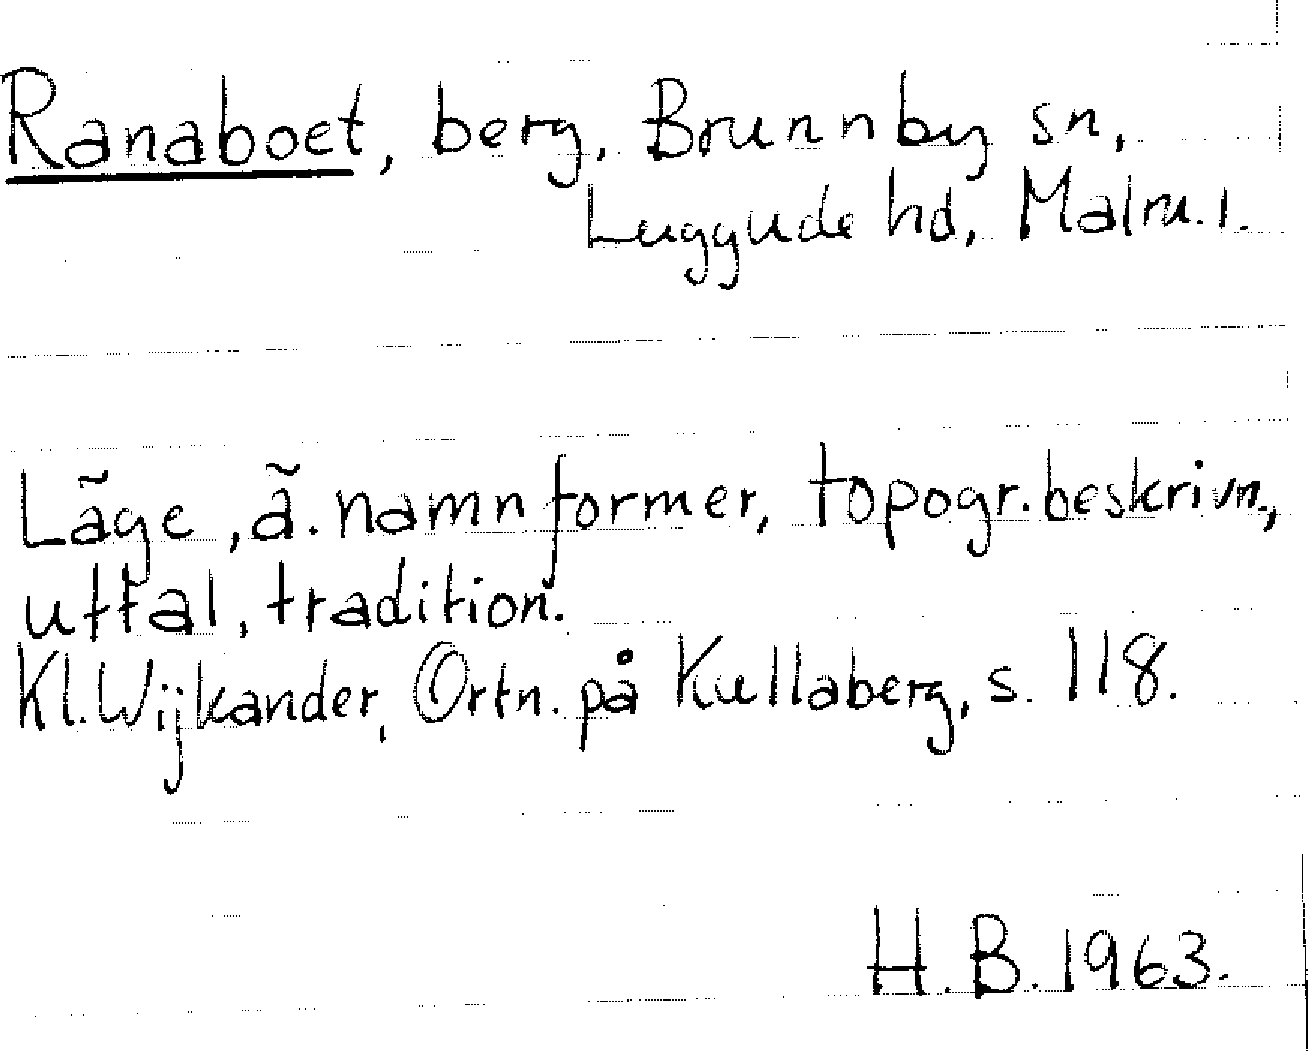 Ranaboet, berg, Brunnby sn,
Luggude hd, Malm. l.
Läge, ä. namnformer, topogr. beskrivn.,
uttal, tradition.
Kl. Wijkander, Ortn. på Kullaberg, s. 118.
H. B. 1963.